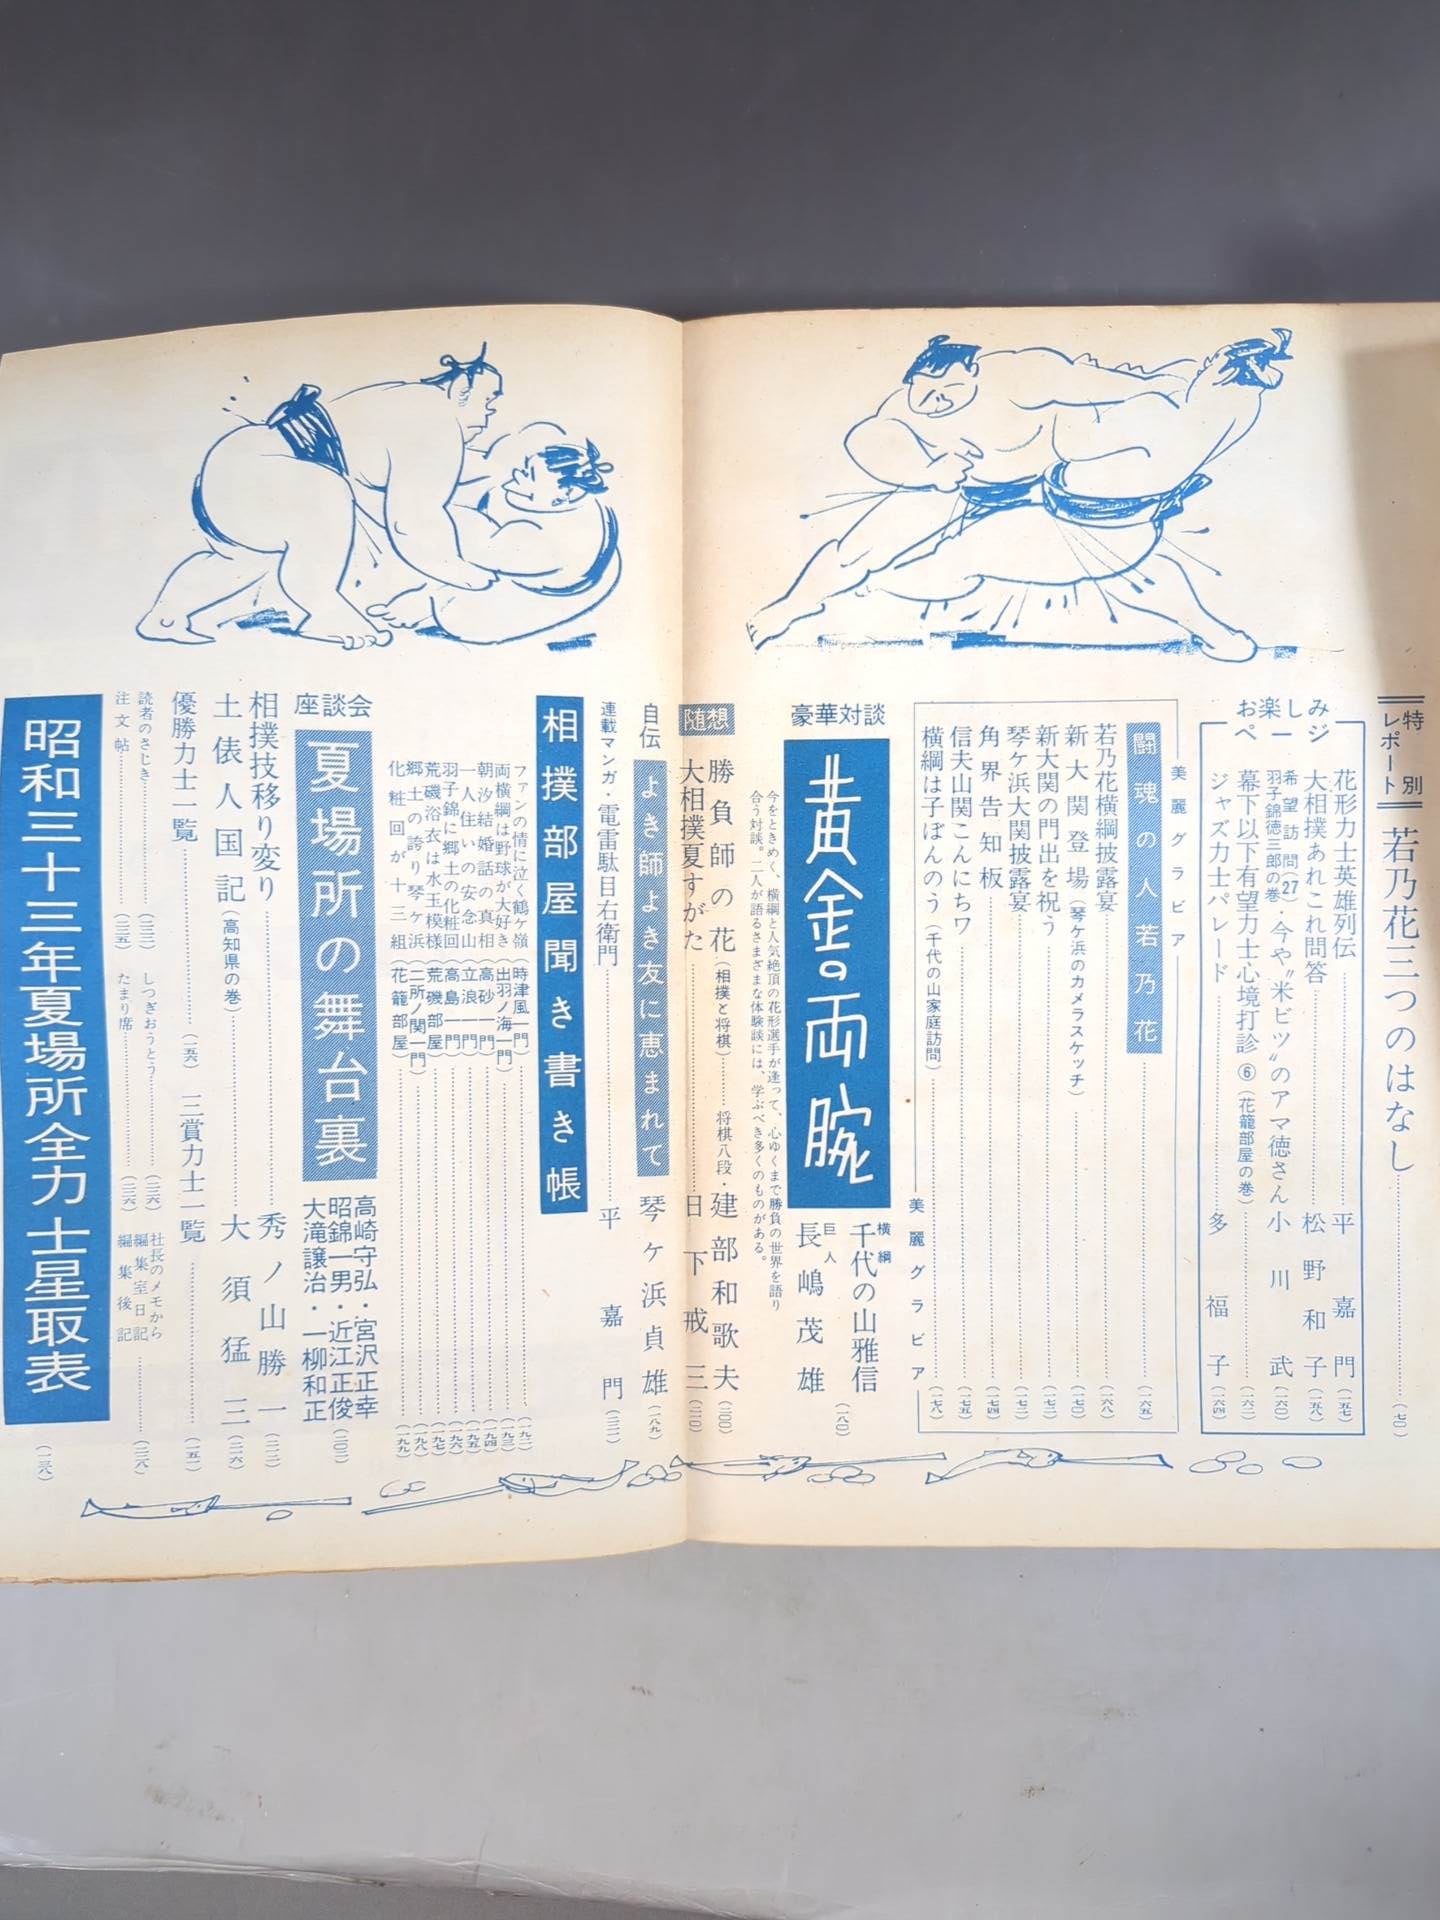 特別
レポート
若乃花三つのはなし……(七〇)
お楽しみ
ページ
花形力士英雄列伝……平嘉門(一五七)
大相撲あれこれ問答……松野和子(一五八)
希望訪問(27)
羽子錦徳三郎の巻・今や〝米ビツ〟のアマ徳さん 小川武(一六〇)
幕下以下有望力士心境打診⑥(花籠部屋の巻)……(一六二)
ジャズ力士パレード……多福子(一六四)
美麗グラビア
闘魂の人若乃花……(一六五)
若乃花横綱披露宴……(一六八)
新大関登場(琴ケ浜のカメラスケッチ)……(一七〇)
新大関の門出を祝う……(一七二)
琴ケ浜大関披露宴……(一七二)
角界告知板……(一七四)
信夫山関こんにちワ……(一七五)
横綱は子ぼんのう(千代の山家庭訪問)……(一七八)
美麗グラビア
豪華対談
黄金の両腕
横綱 千代の山雅信
巨人 長嶋茂雄
(一八〇)
今をときめく、横綱と人気絶頂の花形選手が逢って、心ゆくまで勝負の世界を語り
合う対談。二人が語るさまざまな体験談には、学ぶべき多くのものがある。
随想
勝負師の花(相撲と将棋)……将棋八段・建部和歌夫(二〇〇)
大相撲夏すがた……日下戒三(二一〇)
自伝
よき師よき友に恵まれて 琴ケ浜貞雄(一八九)
連載マンガ・電雷駄目右衛門……平嘉門(二二一)
相撲部屋聞き書き帳
ファンの情に泣く鶴ケ嶺(時津風一門)……(一九二)
両横綱は野球が大好き(出羽ノ海一門)……(一九三)
朝汐結婚話の真相(高砂一門)……(一九四)
一人住いの安念山(立浪一門)……(一九五)
羽子錦に郷土の化粧回(高島一門)……(一九六)
荒磯浴衣は水玉模様(荒磯部屋)……(一九七)
郷土の誇り琴ケ浜(二所ノ関一門)……(一九八)
化粧回が十三組(花籠部屋)……(一九九)
座談会
夏場所の舞台裏
高崎守弘・宮沢正幸
昭錦一男・近江正俊
大滝譲治・一柳和正
(二〇二)
相撲技移り変り……秀ノ山勝一(二一二)
土俵人国記(高知県の巻)……大須猛三(二一六)
優勝力士一覧……(一五六)
三賞力士一覧……(一五一)
読者のさじき……(二三二)
しつぎおうとう……(二三六)
社長のメモから
編集室日記
編集後記……(二三八)
注文帖……(二三五)
たまり席……(二三六)
昭和三十三年夏場所全力士星取表
(一三八)